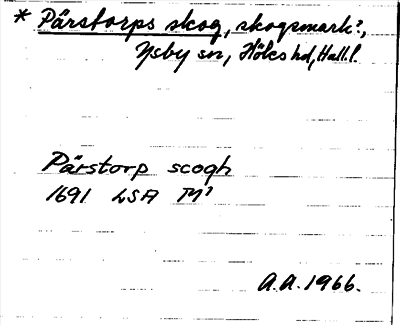 * Pärstorps skog, skogsmark?,
Ysby sn, Höks hd, Hall.
Pärstorp scogh
1691 LSA M¹
A.A. 1966.